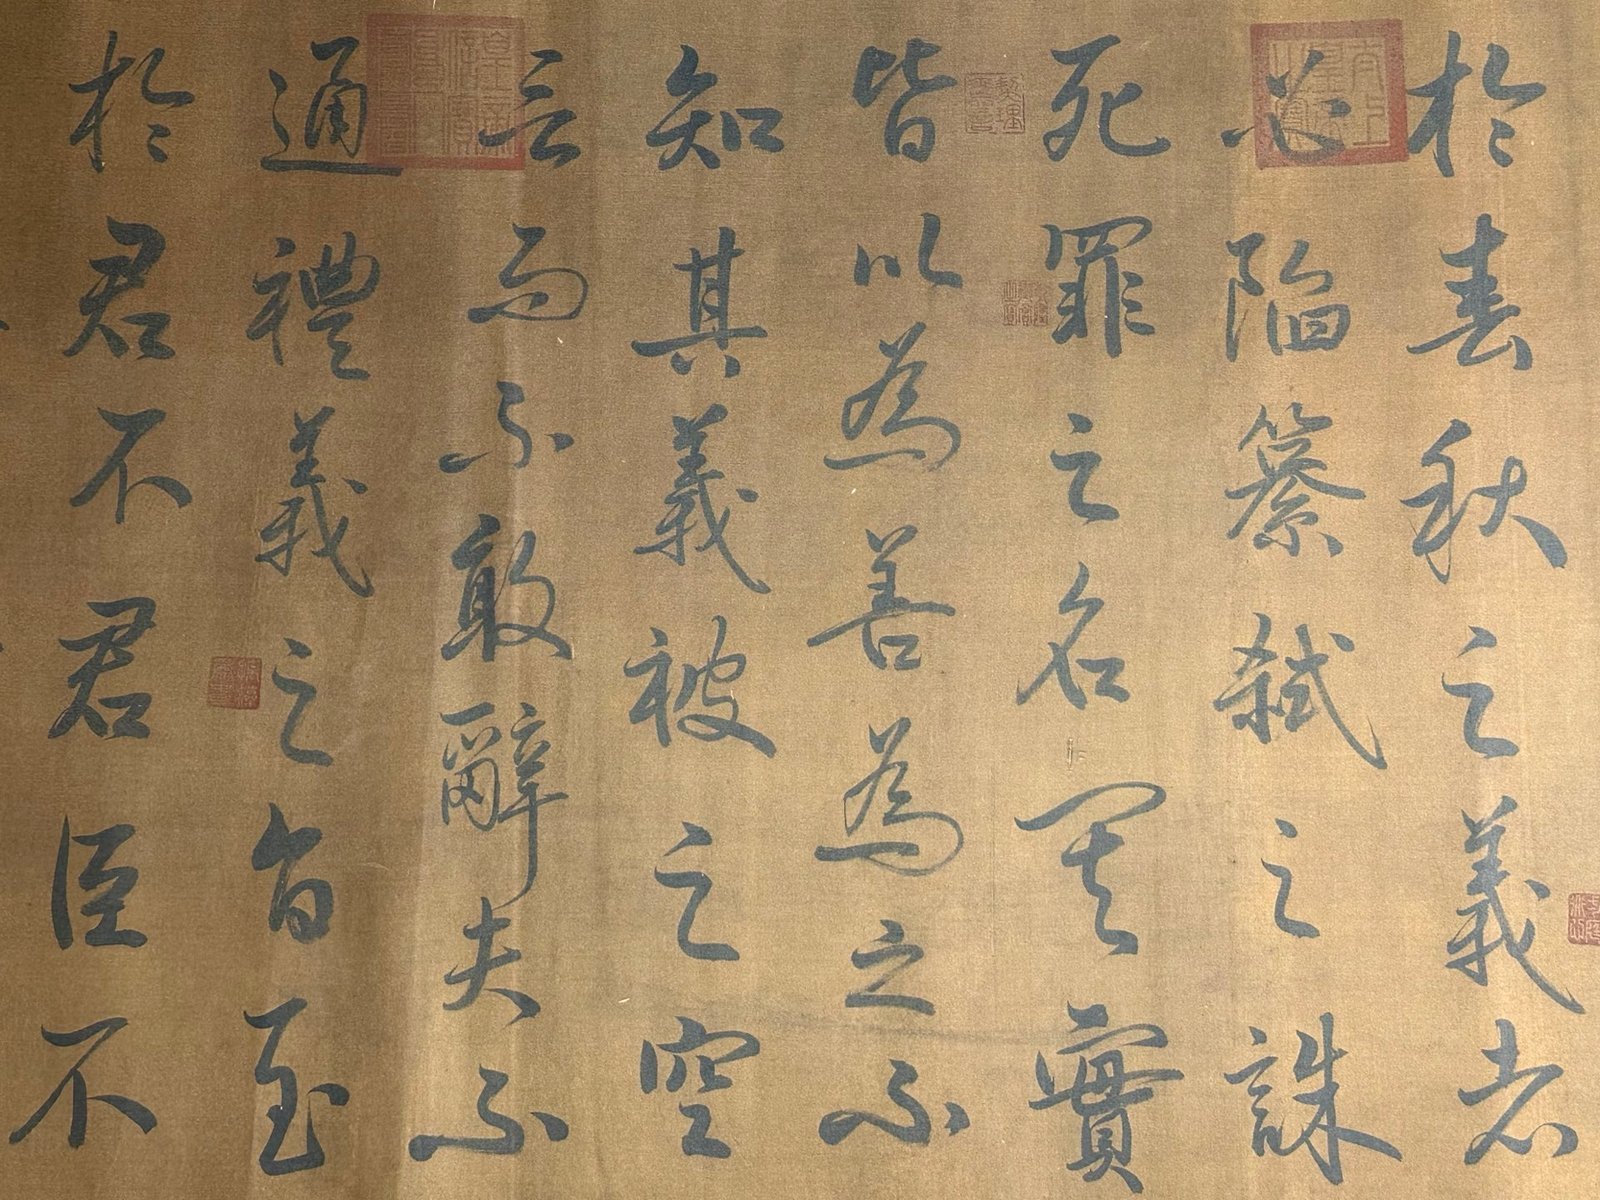 於春秋之義者
必陷篡弒之誅
死罪之名其實
皆以為善為之不
知其義被之空
言而不敢辭夫不
通禮義之旨至
於君不君臣不